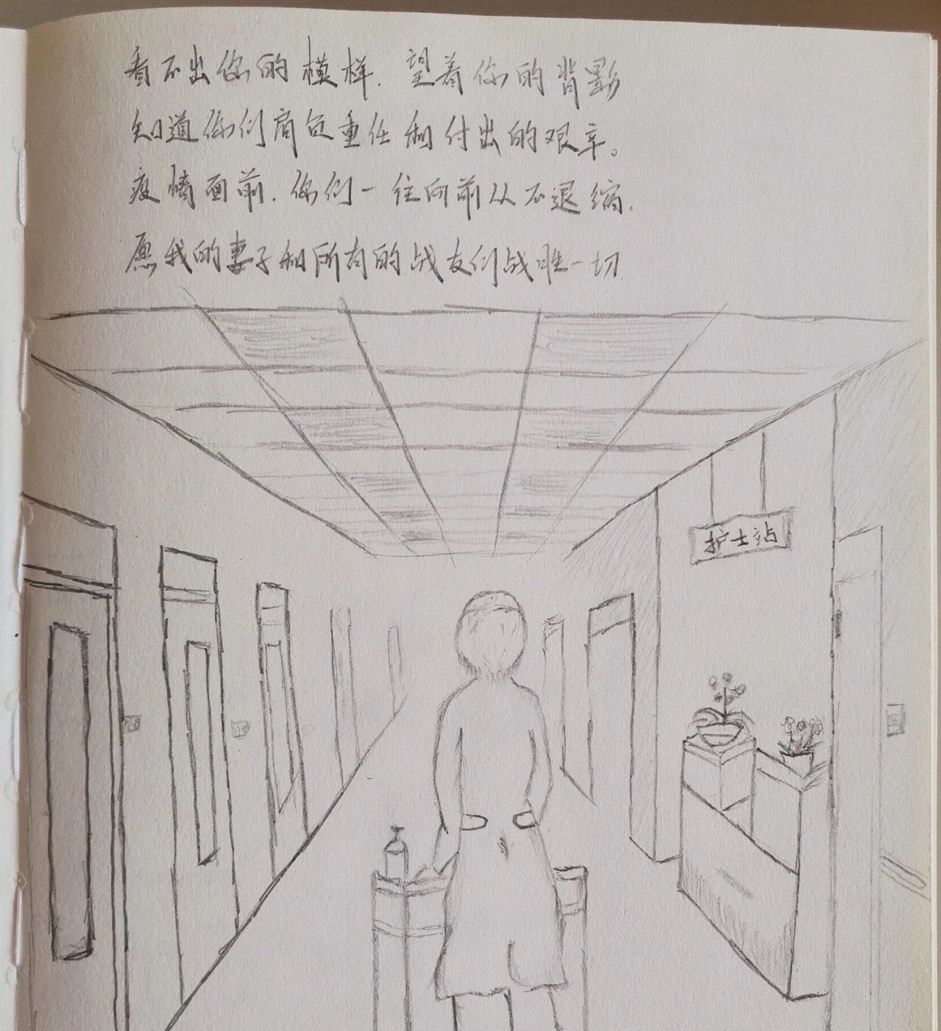 看不出你的模样.望着你的背影
知道你们肩负重任和付出的艰辛。
疫情面前.你们一往向前从不退缩.
愿我的妻子和所有的战友们战胜一切.
护士站